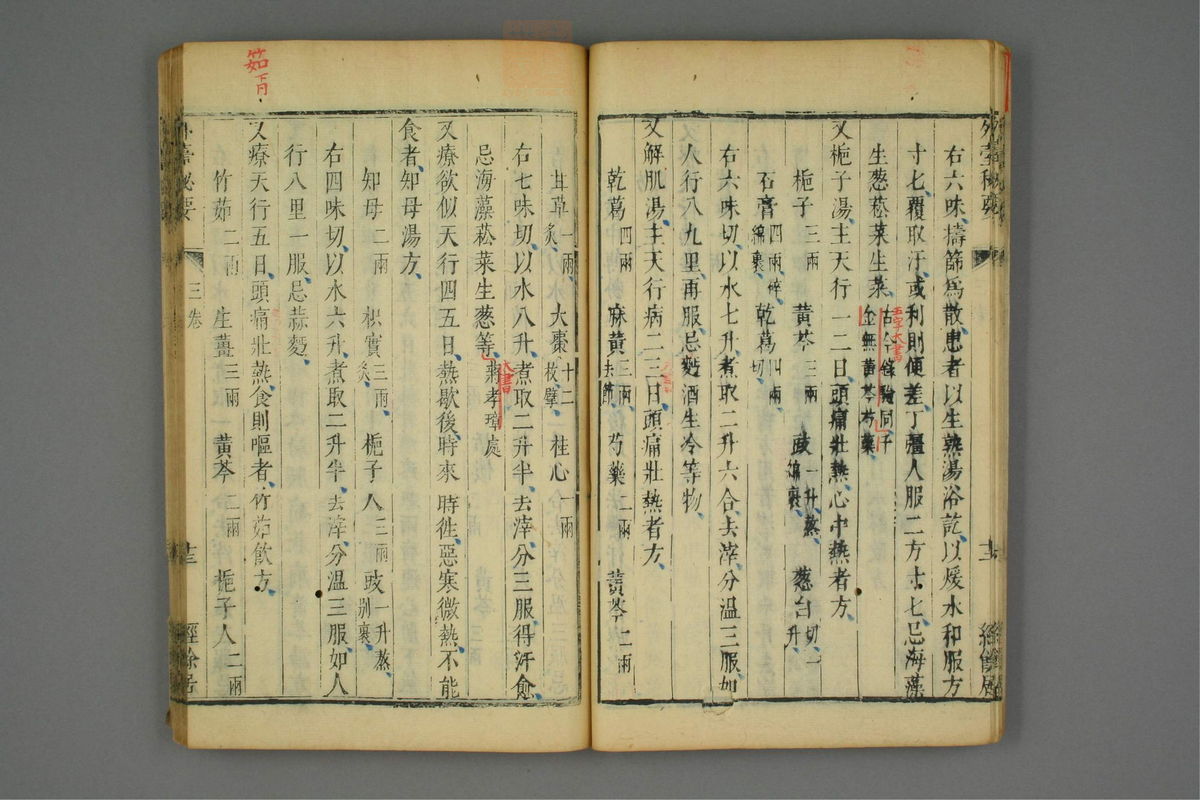 右六味擣篩爲散患者以生熟湯浴訖以煖水和服方
寸七覆取汗或利則便差丁彊人服二方寸七忌海藻
生葱菘菜生菜
古今錄驗同千
金無黄芩芍藥
五字大書
又梔子湯主天行一二日頭痛壯熱心中熱者方
梔子三兩 黄芩三兩 豉一升蒸綿裹 葱白切一升
石膏四兩碎綿裹 乾葛四兩切
右六味切以水七升煮取二升六合去滓分温三服如
人行八九里再服忌麫酒生冷等物
又解肌湯主天行病二三日頭痛壯熱者方
乾葛四兩 麻黄三兩去節 芍藥二兩 黄芩二兩
甘草一兩炙 大棗十二枚擘 桂心一兩
右七味切以水八升煮取二升半去滓分三服得汗愈
忌海藻菘菜生葱等 蔣孝璋處
大書
又療欲似天行四五日熱歇後時來時徃惡寒微熱不能
食者知母湯方
知母二兩 枳實三兩炙 梔子人三兩 豉一升蒸別裹
右四味切以水六升煮取二升半去滓分温三服如人
行八里一服忌蒜麫
又療天行五日頭痛壯熱食則嘔者竹茹飲方
竹茹二兩 生薑三兩 黄芩二兩 梔子人二兩
茹
三卷
十三
經餘居